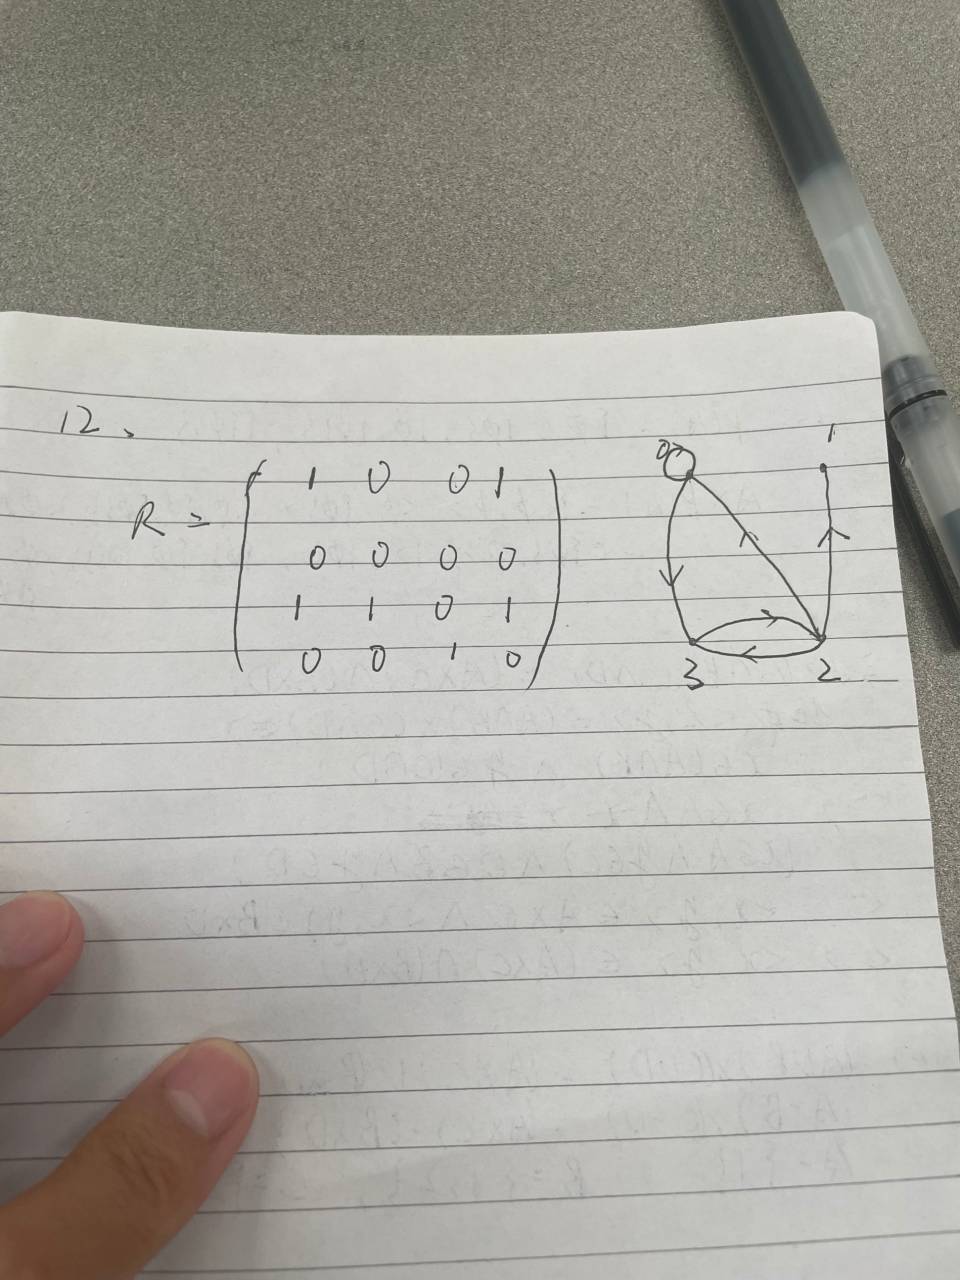 12、
R =
1 0 0 1
0 0 0 0
1 1 0 1
0 0 1 0
0 1
3 2